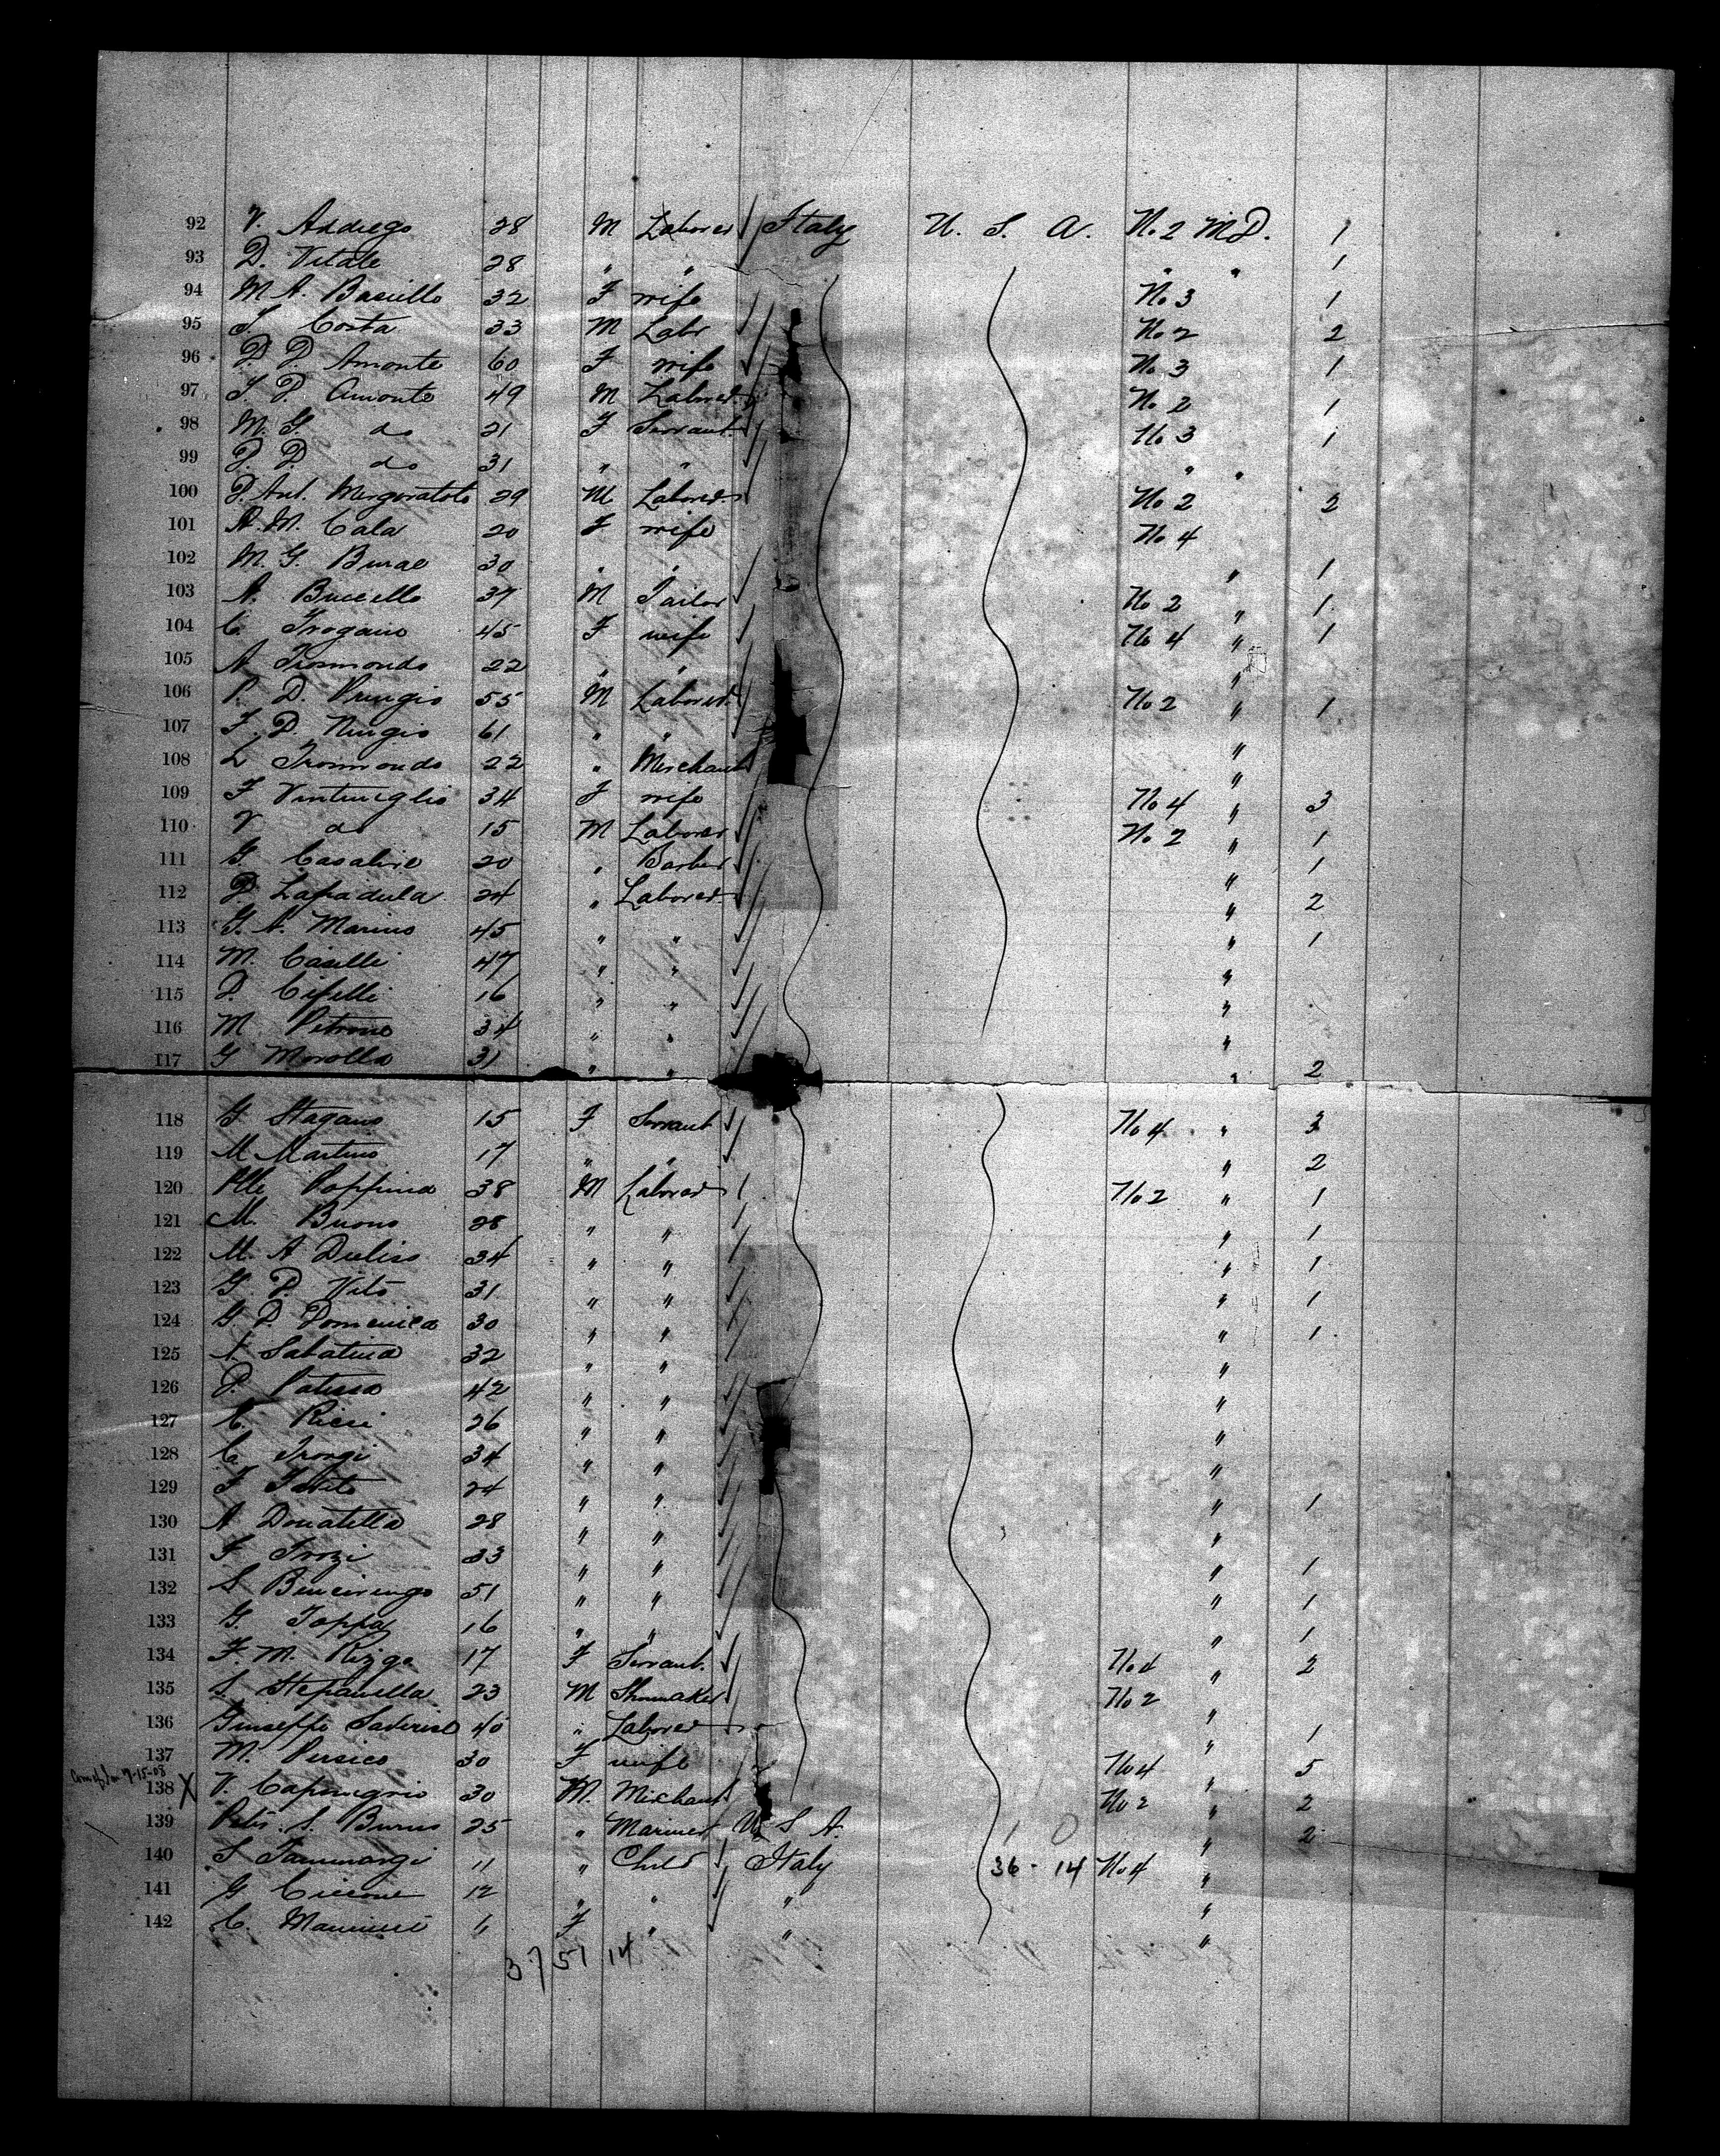 92 V. Addiego 28 M Laborer Italy U. S. A. No. 2 M D. 1
93 D. Vitale 28 " " " " 1
94 M A. Basiello 32 F wife No 3 1
95 Costa 33 M Labr No 2 2
96 D. D. Amonte 60 F wife No 3 1
97 F. D. Amonte 49 M Laborer No 2 1
98 M. G do 21 F Servant No 3 1
99 D. D. do 31 " " " "
100 D. Ant. 29 M Laborer No 2 2
101 A. M. Cala 20 F wife No 4
102 M. G. 30 " " " 1
103 A. Buccello 37 M Tailor No 2 " 1
104 C. Trogano 45 F wife No 4 " 1
105 A. Tromondo 22 " " "
106 P. D. 55 M Laborer No 2 " 1
107 F. D. 61 " " "
108 L Tromondo 22 " Merchant "
109 F Vintimiglio 34 F wife No 4 " 3
110 V do 15 M Laborer No 2 " 1
111 G. Casalire 20 " Barber " 1
112 D. Lapadula 24 " Laborer " 2
113 G. A. Marino 45 " " " 1
114 M. Caselli 47 " " "
115 D. Cifelli 16 " " "
116 M Petrone 34 " " "
117 G Morolla 31 " " " 2
118 G Stagano 15 F Servant No 4 " 3
119 M Martino 17 " " " 2
120 38 M Laborer No 2 " 1
121 M. Buono 28 " " " 1
122 M. A 34 " " " 1
123 G. D. Vito 31 " " " 1
124 G. D. Domenica 30 " " " 1
125 A. Sabatina 32 " " "
126 D. 42 " " "
127 C. Ricci 26 " " "
128 C. Trongi 34 " " "
129 F 24 " " " 1
130 A Donatella 28 " " "
131 F Trozi 33 " " " 1
132 S 51 " " " 1
133 G. Toppa 16 " " " 1
134 F. M. Rizga 17 F Servant. No 4 " 2
135 S. Stefanella 23 M Shoemaker No 2 "
136 Giuseppe 40 " Laborer " 1
137 M. Persico 30 F wife No 4 " 5
7-15-08
138 X V. 30 M. Merchant No 2 " 2
139 S. Burns 25 " Mariner U S A. 1 0 " 2
140 S 11 " Child Italy 36 - 14 No 4 "
141 G Ciccone 12 " " " "
142 C. F " " "
37 51 14